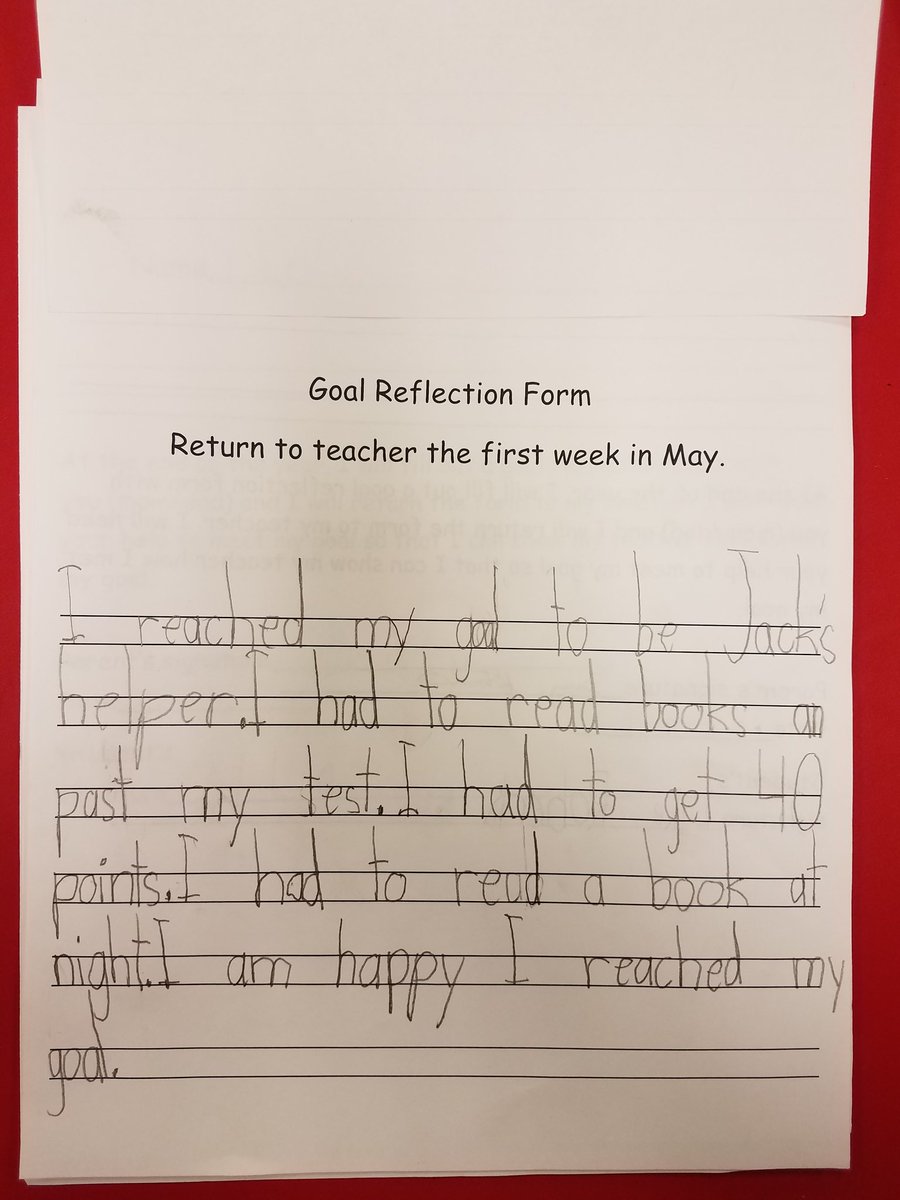 Goal Reflection Form
Return to teacher the first week in May.
I reached my goal to be Jack's
helper.I had to read books an
past my test.I had to get 40
points.I had to read a book at
night.I am happy I reached my
goal.